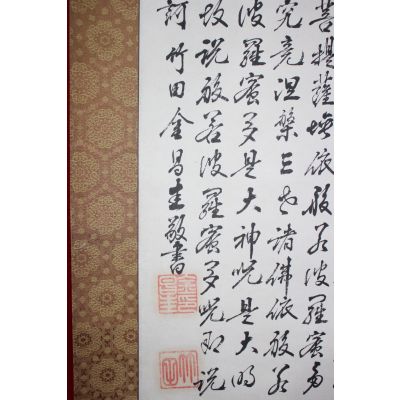 菩提薩埵依般若波羅蜜多
究竟涅槃三世諸佛依般若
波羅蜜多是大神呪是大明
故説般若波羅蜜多呪即説
訶 竹田金昌圭敬書
竹田